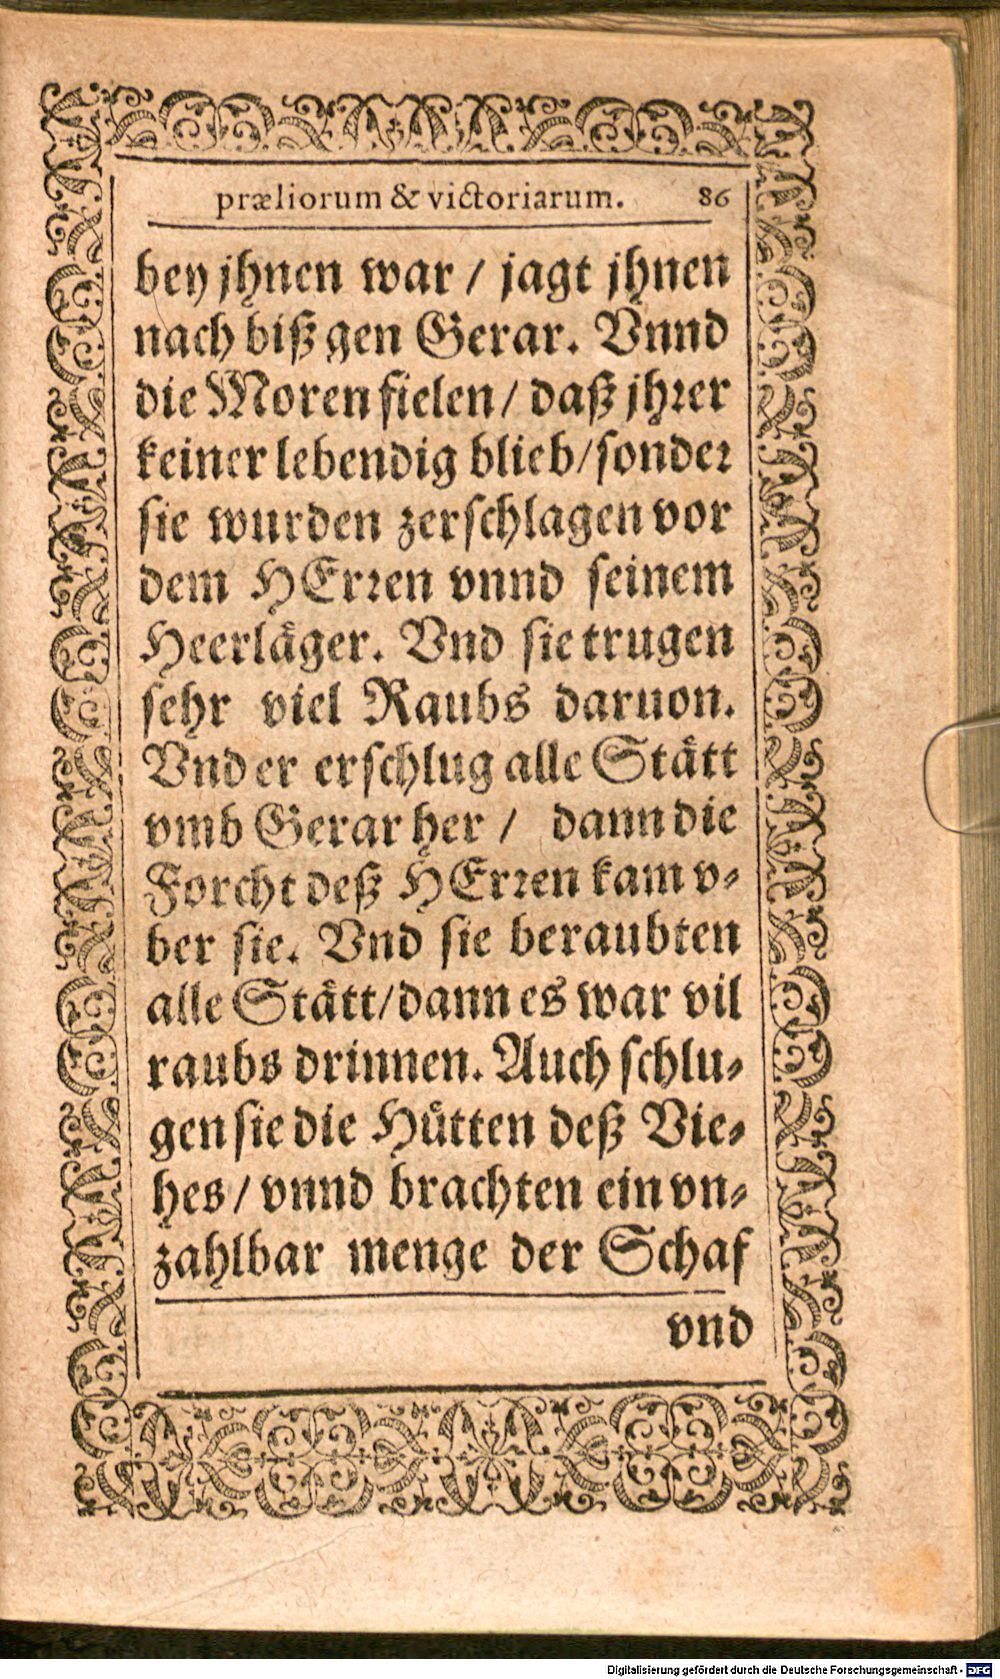 præliorum & victoriarum. 86
bey jhnen war / jagt jhnen
nach biß gen Gerar. Vnnd
die Moren fielen / daß jhrer
keiner lebendig blieb / sonder
sie wurden zerschlagen vor
dem HErren vnnd seinem
Heerläger. Vnd sie trugen
sehr viel Raubs daruon.
Vnd er erschlug alle Stätt
vmb Gerar her / dann die
Forcht deß HErren kam v-
ber sie. Vnd sie beraubten
alle Stätt / dann es war vil
raubs drinnen. Auch schlu-
gen sie die Hütten deß Vie-
hes / vnnd brachten ein vn-
zahlbar menge der Schaf
vnd
Digitalisierung gefördert durch die Deutsche Forschungsgemeinschaft - DFG